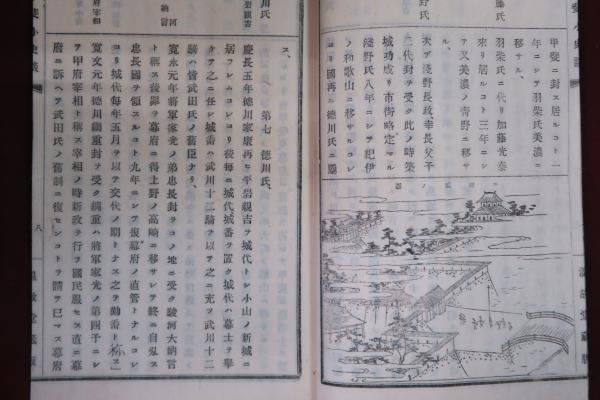 甲斐ニ封ス居ルコト二
年ニシテ羽柴氏美濃ニ
移サル、
羽柴氏ニ代リ加藤光泰
來リ居ルコト三年ニシ
テ又美濃ノ青野ニ移サ
ル、
次ヲ淺野長政幸長父子
二代封ヲ受ク此ノ時築
城功成リ市街略定マル
淺野氏八年ニシテ紀伊
ノ和歌山ニ移サルコレ
國再ニ德川氏ニ
第七 德川氏、
慶長五年德川家康再ヒ平岩親吉ヲ城代トシ小山ノ新城ニ
居ラシムコレヨリ後毎ニ城代城番ヲ置ク城代ハ幕士ヲ擧
ケテ之ニ任シ城番ハ武川十二騎ヲ以テ之ニ充ツ武川十二
騎ハ皆武田氏ノ舊臣ナリ、
寛永元年將軍家光ノ弟忠長封ヲコノ地ニ受ク駿河大納言
ト稱ス後罪ヲ幕府ニ得上野ノ高崎ニ移サレテ終ニ自殺ス
忠長國ヲ領スルコト九年ニシテ復幕府ノ直管トナルコレ
ヨリ城代毎年五月ヲ以テ交代ノ期トナス之ヲ勤番ト稱ス
寛文元年德川綱重封ヲ受ク綱重ハ將軍家光ノ第四子ニシ
テ甲府宰相ト稱ス宰相ノ時新政ヲ行フ國民服セス直ニ幕
府ニ訴ヘテ武田氏ノ舊制ニ復センコトヲ請テ已マス幕府
八